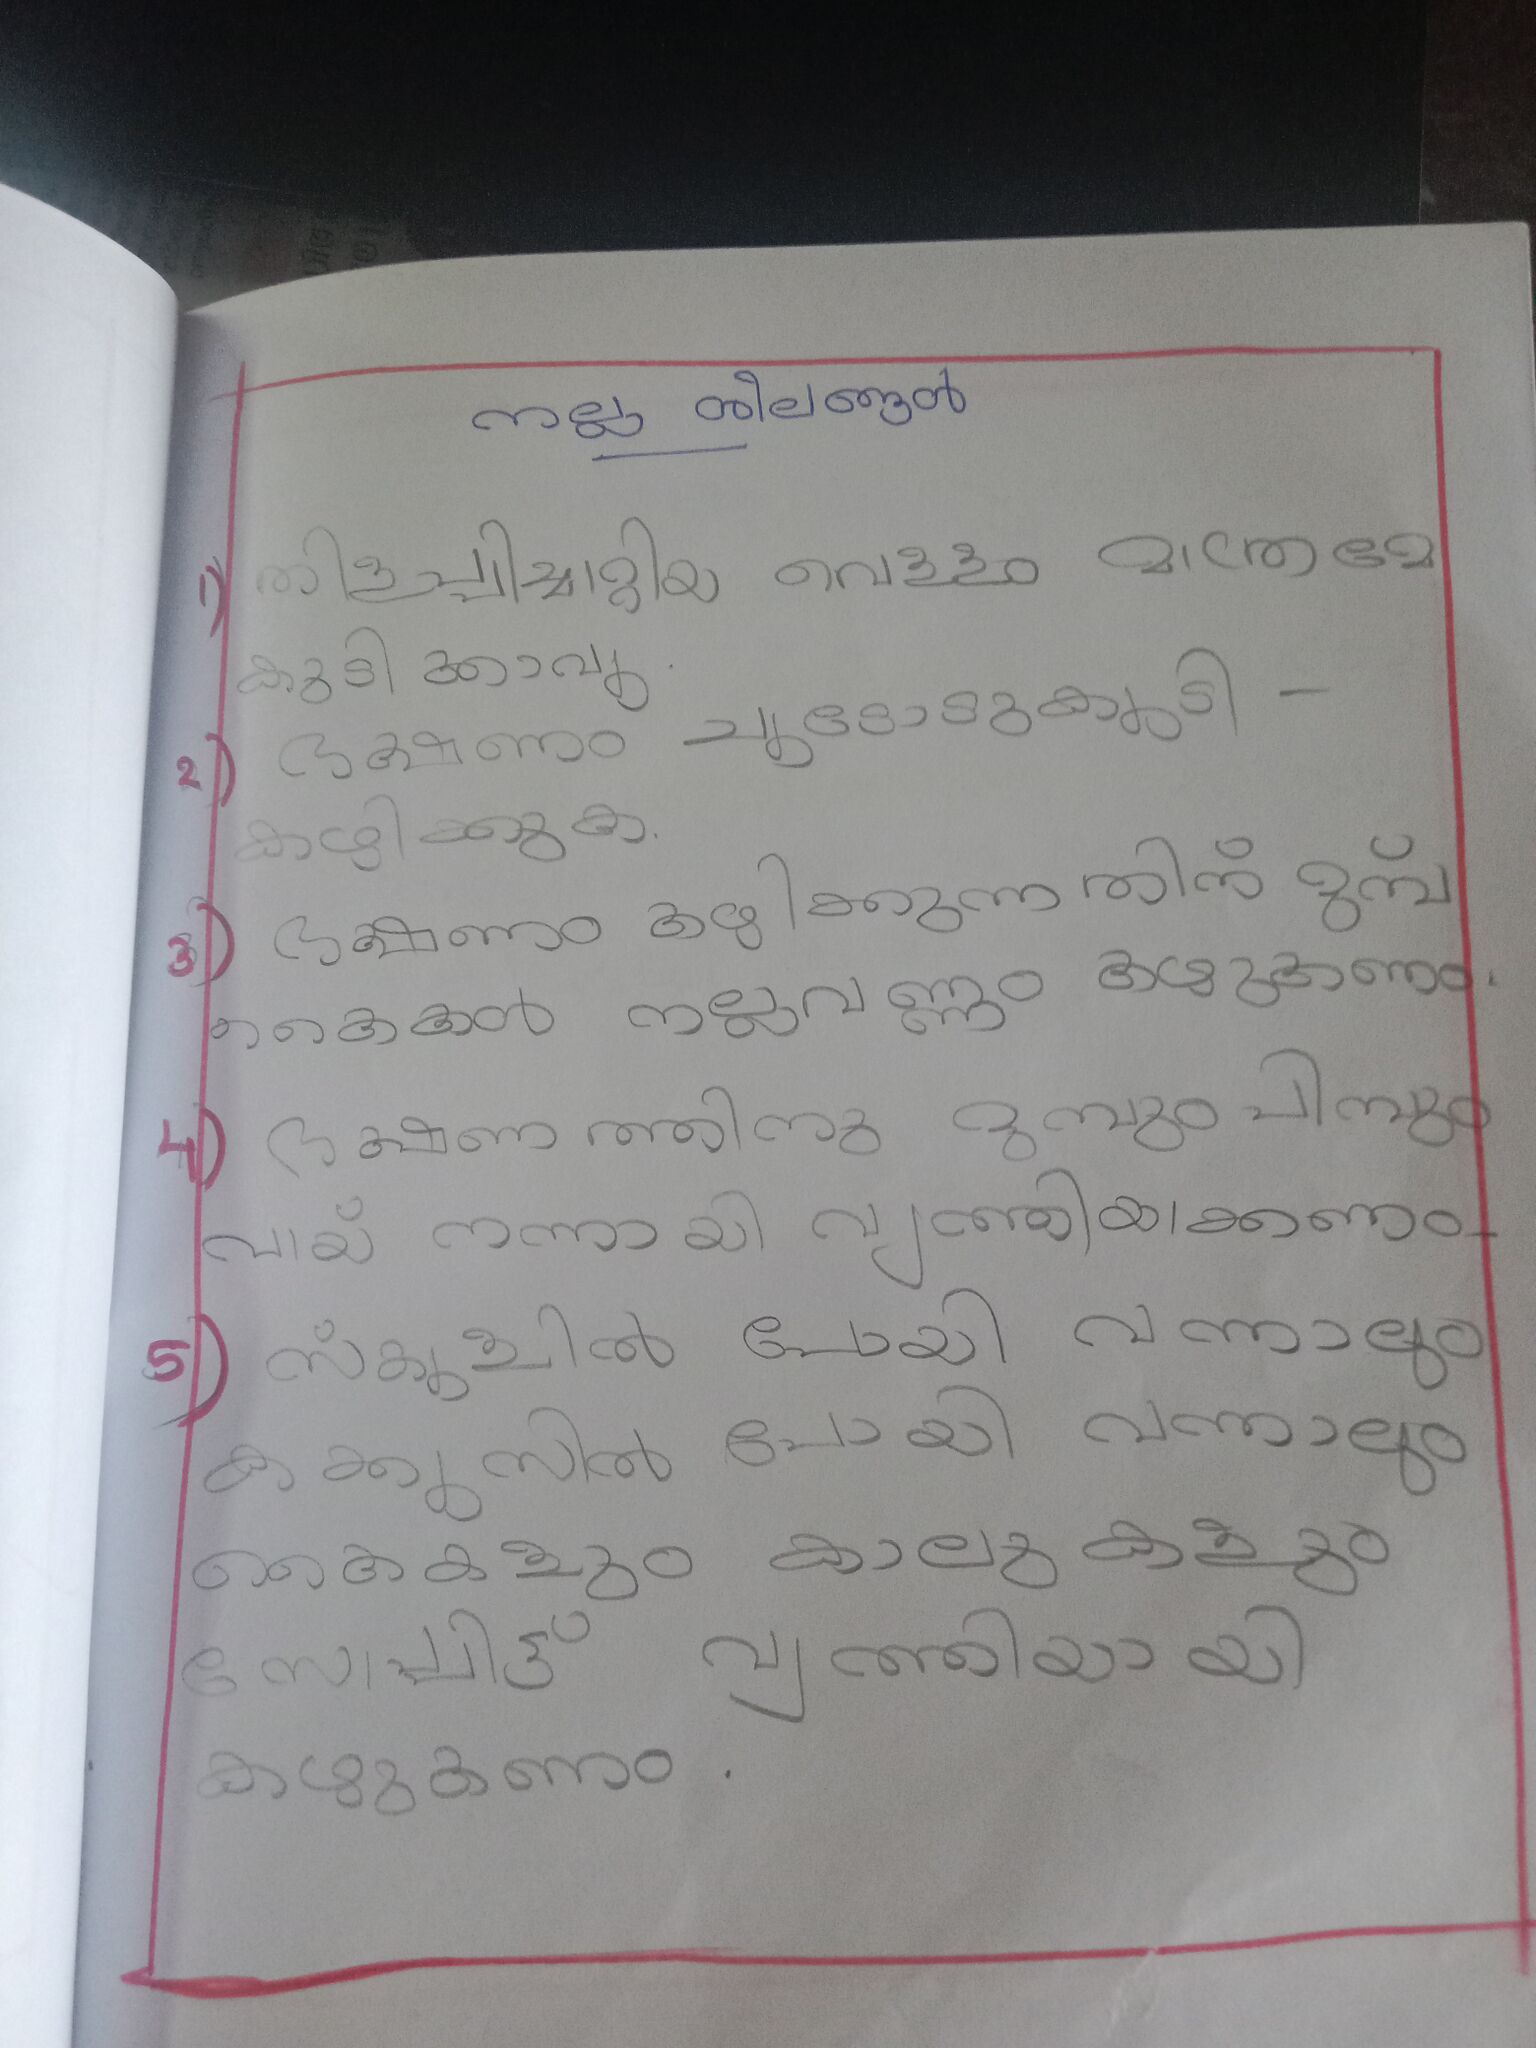 നല്ല ശീലങ്ങൾ
1) തിളപ്പിച്ചാറ്റിയ വെള്ളം മാത്രമേ
കുടിക്കാവൂ.
2) ഭക്ഷണം ചൂടോടുകൂടി -
കഴിക്കുക.
3) ഭക്ഷണം കഴിക്കുന്നതിന് മുമ്പ്
കൈകൾ നല്ലവണ്ണം കഴുകണം.
4) ഭക്ഷണത്തിനു മുമ്പും പിമ്പും
വായ് നന്നായി വൃത്തിയാക്കണം.
5) സ്കൂളിൽ പോയി വന്നാലും
കക്കൂസിൽ പോയി വന്നാലും
കൈകളും കാലുകളും
സോപ്പിട്ട് വൃത്തിയായി
കഴുകണം.